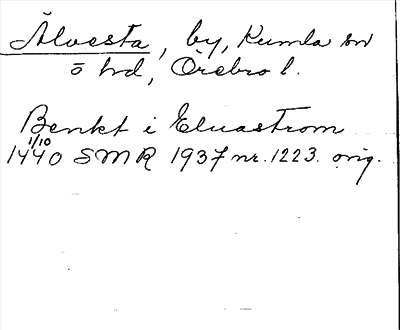 Älvesta, by, Kumla sn
ö hd, Örebro l.
Benkt i Eluastrom
1/10
1440 SMR 1937 nr. 1223. orig.